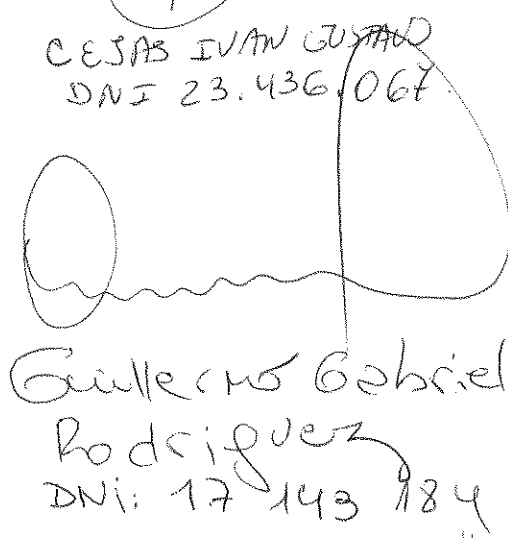 CEJAS IVAN GUSTAVO
DNI 23.436.067.
Guillermo Gabriel
Rodriguez
DNi: 17 143 184